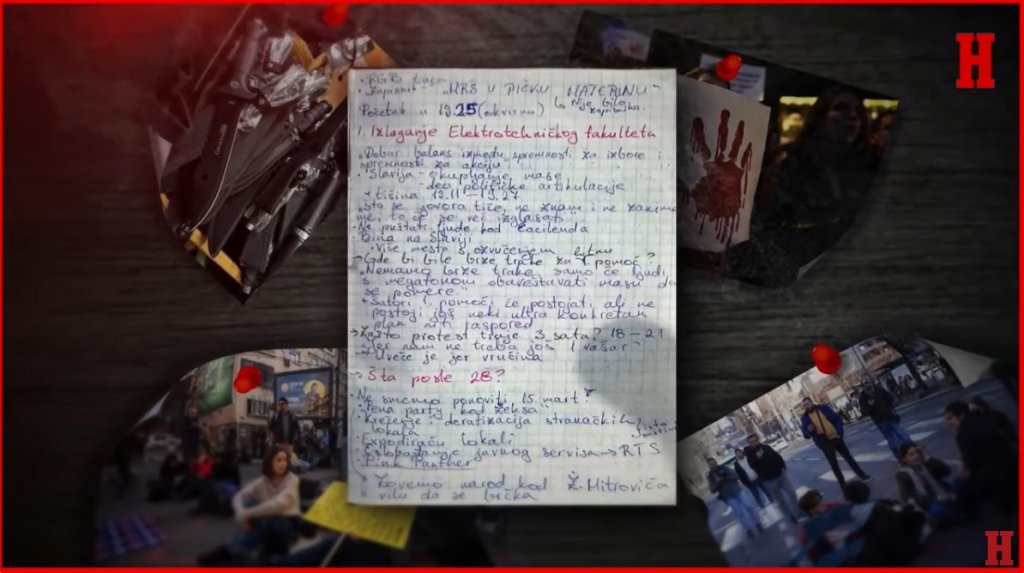 H
• RGF: tuča
• Zapisnik - "MRŠ U PIČKU MATERINU"
Početak u 19:25 (okvirno) ↳ Nije bilo zapisnika.
1. Izlaganje Elektrotehničkog fakulteta
"Dobar balans između spremnosti za izbore i
spremnosti za akciju"
• Slavija - okupljanje mase
- deo političke artikulacije
• tišina 19.11 – 19.27
"što se govora tiče, ne znam i ne zanima
me, to će se već izglasati"
• Ne puštati ljude kod Ćacilenda
• Bina na Slaviji
• Više mesta s ozvučenjem bitnu
→ Gde bi bile brze trake za 1. pomoć?
"Nemamo brze trake, samo će ljudi
s megafonom obaveštavati masu da
se pomere"
• Šatori 1. pomoći će postojati ali ne
postoji još neki ultra konkretan
plan niti raspored
→ Zašto protest traje 3 sata? 18 – 21
"Jer nam ne treba još 1 vašar"
• Uveče je jer vrućina
→ Šta posle 28?
Ne smemo ponoviti 15. mart!
• Pena party kod Žeksa
• Krečenje i deratizacija stranačkih
lokala
• Expodiraću lokali
• Oslobađanje javnog servisa → RTS
• Pink Panther
→ Zovemo narod kod Ž. Mitrovića
u vilu da se brčka
H